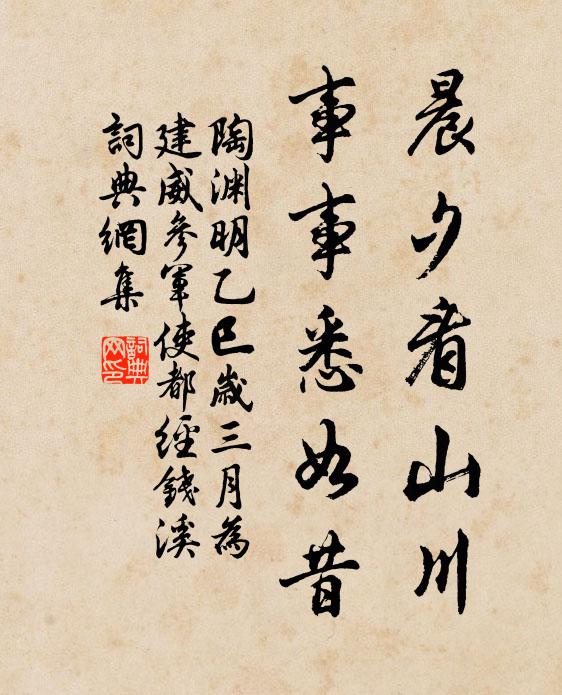 晨夕看山川
事事悉如昔
陶渊明乙巳歲三月為
建威參軍使都經錢溪
詞典網集
詞典
网印